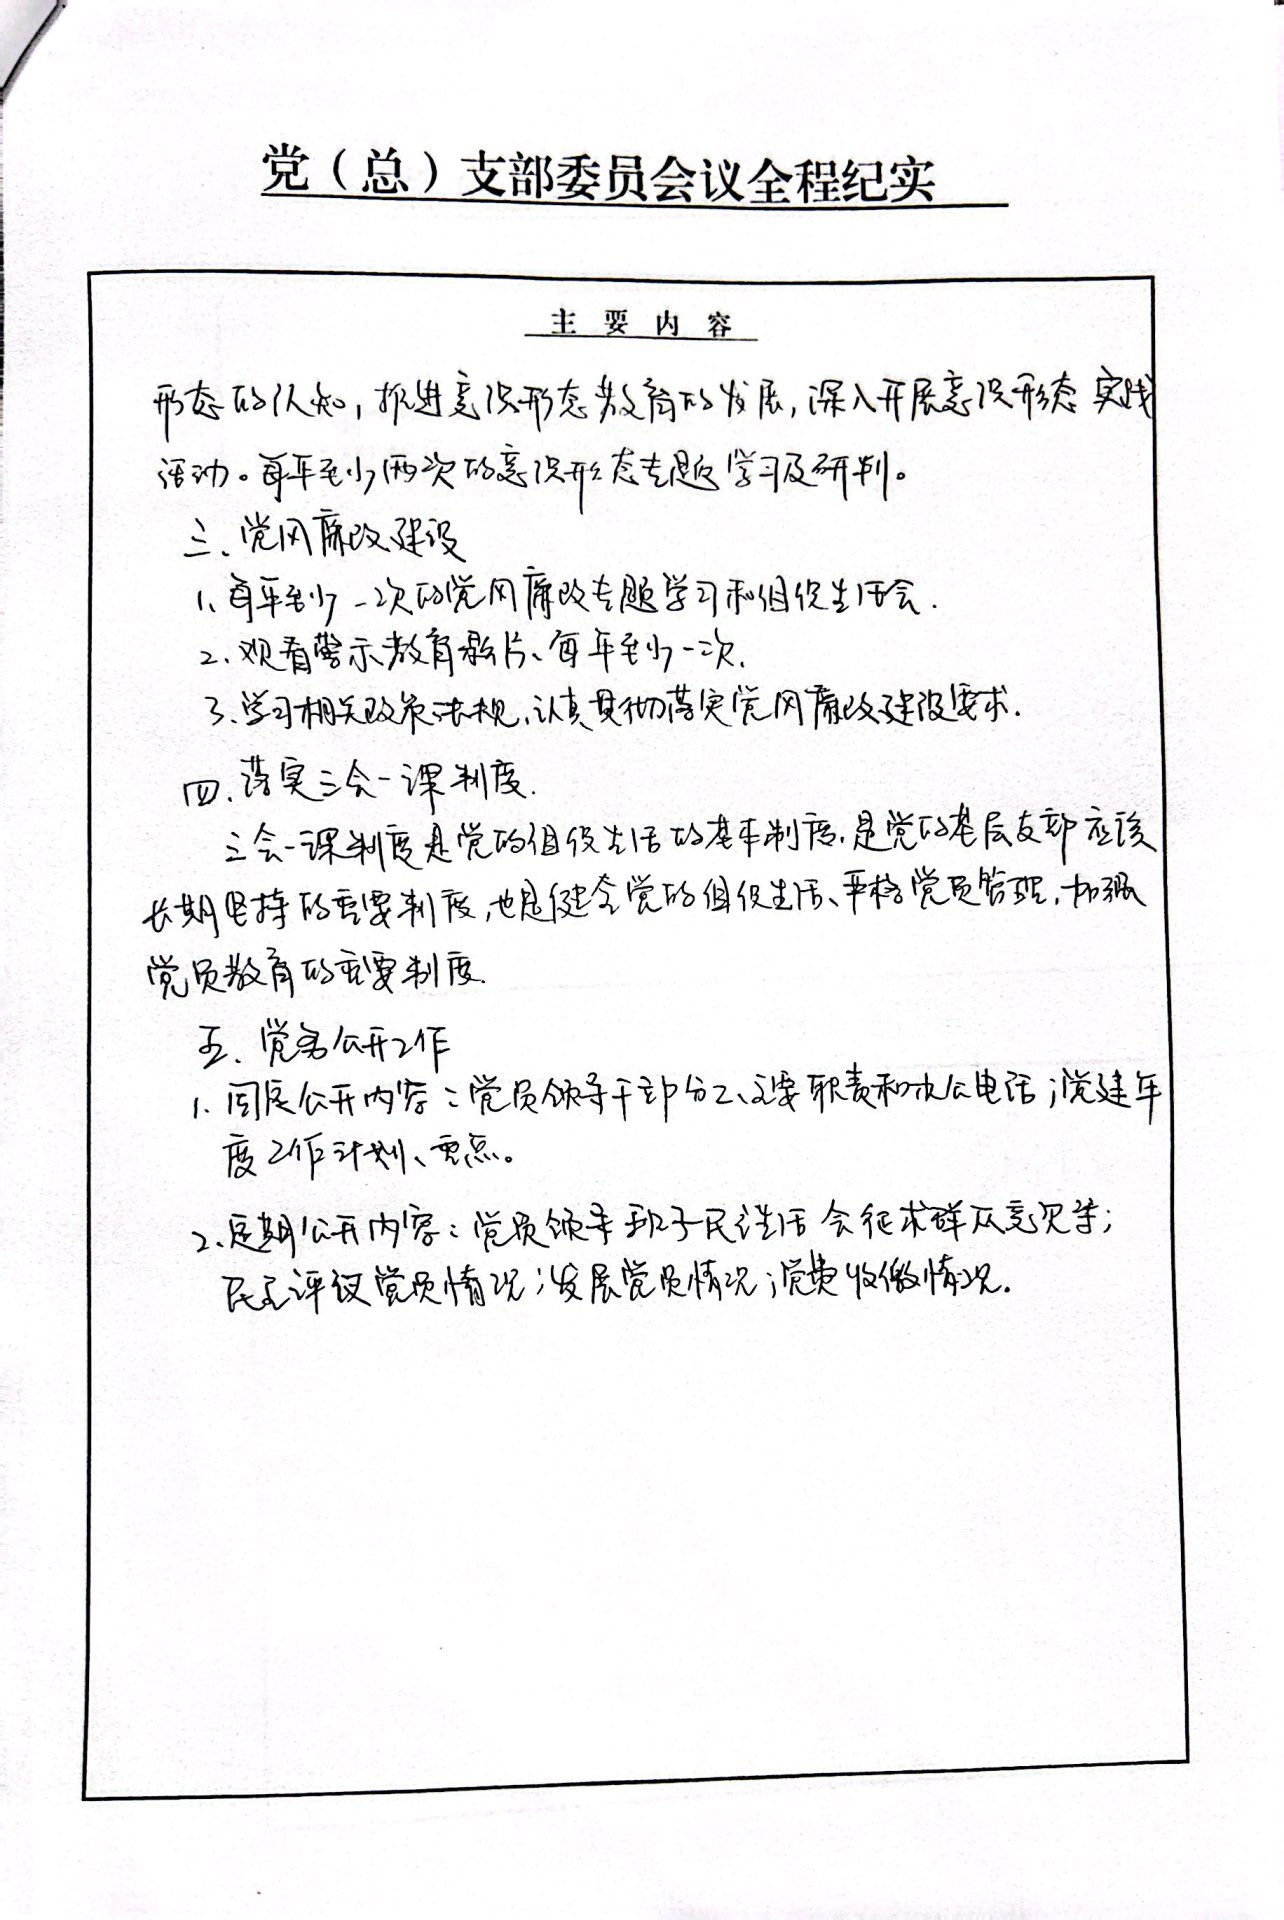 党（总）支部委员会议全程纪实
主要内容
形态的认知，推进意识形态教育的发展，深入开展意识形态实践
活动。每年至少两次的意识形态专题学习及研判。
三、党风廉政建设
1、每年至少一次的党风廉政专题学习和组织生活会.
2、观看警示教育影片、每年至少一次.
3、学习相关政策法规，认真贯彻落实党风廉政建设要求.
四、落实三会一课制度.
三会一课制度是党的组织生活的基本制度，是党的基层支部应该
长期坚持的重要制度，也是健全党的组织生活、严格党员管理，加强
党员教育的重要制度.
五、党务公开工作
1、固定公开内容：党员领导干部分工、主要职责和办公电话；党建年
度工作计划、重点。
2、定期公开内容：党员领导班子民主生活会征求群众意见等；
民主评议党员情况；发展党员情况；党费收缴情况.